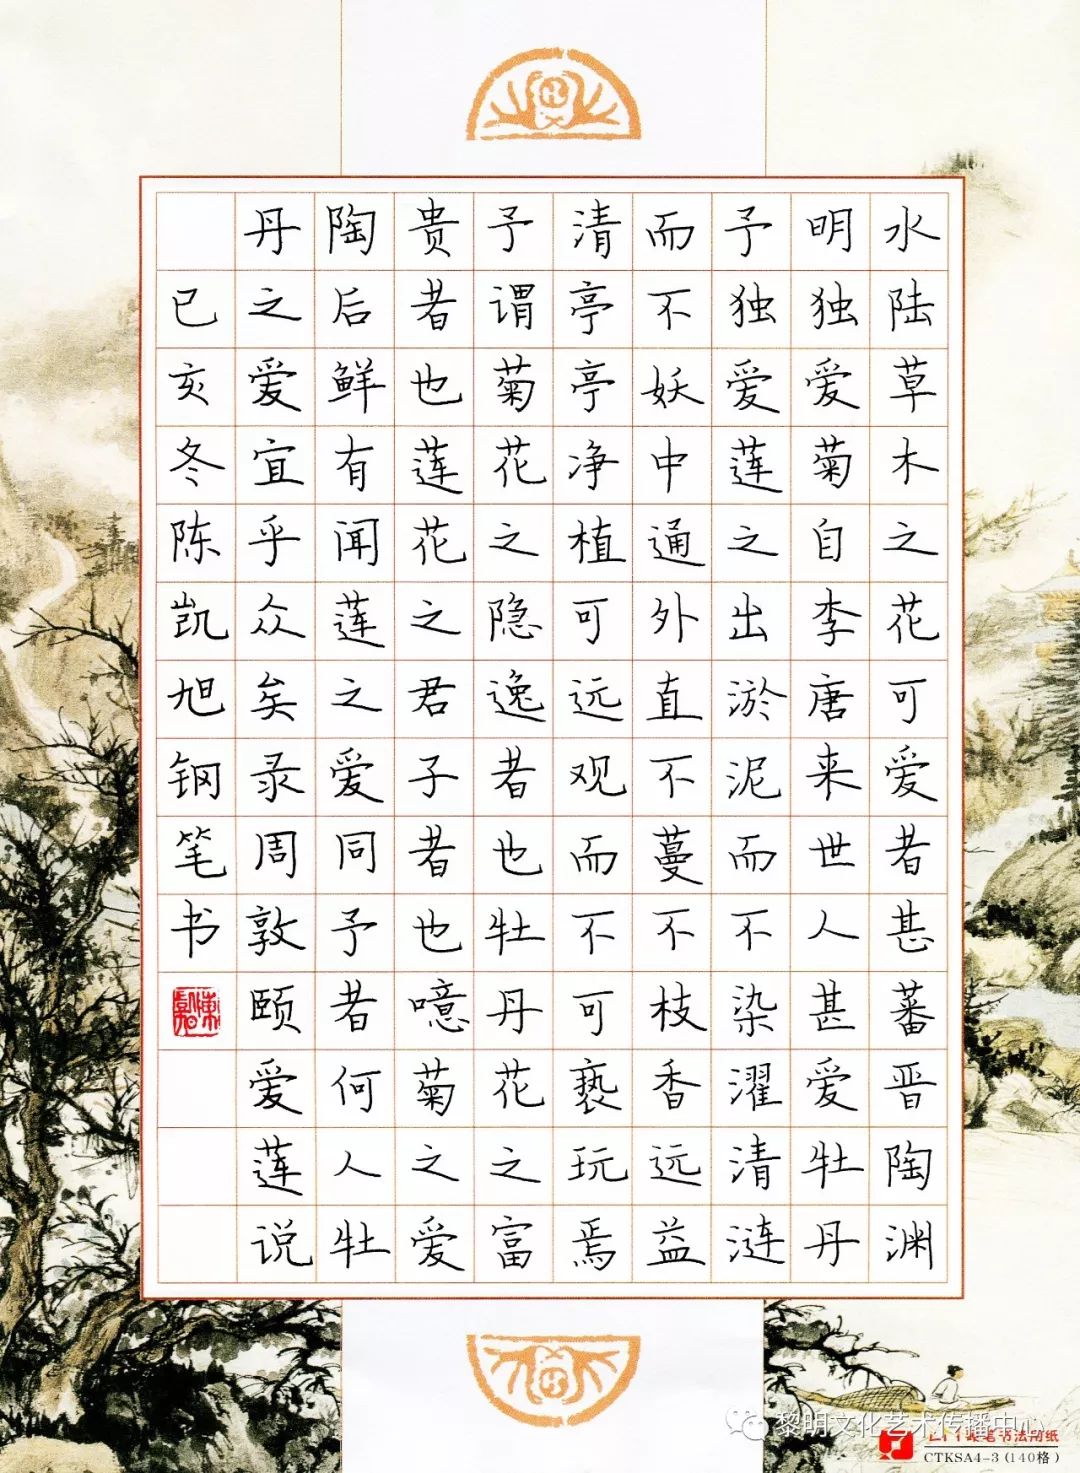 水陆草木之花可爱者甚蕃晋陶渊
明独爱菊自李唐来世人甚爱牡丹
予独爱莲之出淤泥而不染濯清涟
而不妖中通外直不蔓不枝香远益
清亭亭净植可远观而不可亵玩焉
予谓菊花之隐逸者也牡丹花之富
贵者也莲花之君子者也噫菊之爱
陶后鲜有闻莲之爱同予者何人牡
丹之爱宜乎众矣录周敦颐爱莲说
已亥冬陈凯旭钢笔书
黎明文化艺术传播中心
笔书法用纸
CTKSA4-3(140格)